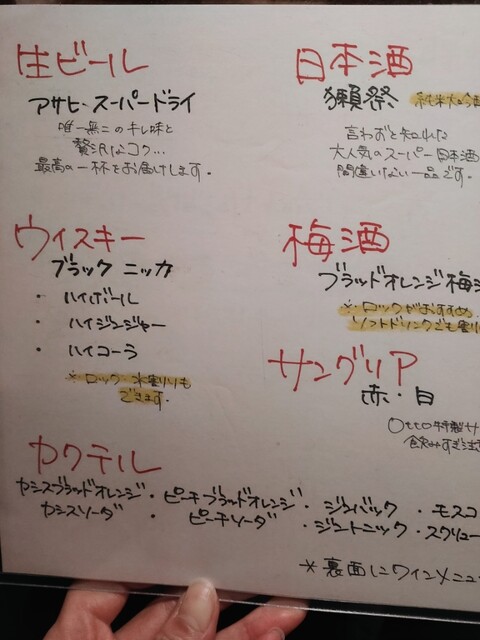 生ビール
アサヒ・スーパードライ
唯一無二のキレ味と
贅沢なコク…
最高の一杯をお届けします。
日本酒
獺祭 純米大吟
言わずと知れた
大人気のスーパー日本酒
間違いない一品です。
ウイスキー
ブラックニッカ
・ ハイボール
・ ハイジンジャー
・ ハイコーラ
※ロック・水割りも
できます。
梅酒
ブラッドオレンジ梅
※ロックがおすすめ
ソフトドリンクでも割
サングリア
赤・白
Otto特製サ
飲みすぎ注
カクテル
カシスブラッドオレンジ・ピーチブラッドオレンジ・ジンバック・モスコ
カシスソーダ・ピーチソーダ・ジントニック・スクリュー
※裏面にワインメニュ